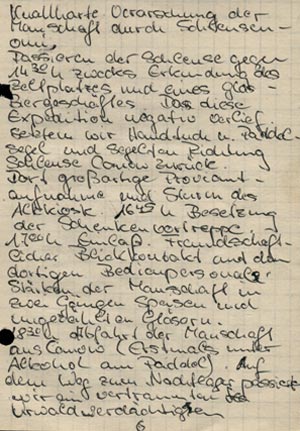 Knallharte Verarschung der
Manschaft durch Schleusen-
oma.
Passieren der Schleuse gegen
14³⁰h zwecks Erkundung des
Zeltplatzes und eines Glas-
biergeschäftes Das diese
Expedition negativ verlief
setzten wir Handtuch u. Paddel-
segel und segelten Richtung
Schleuse Canow zurück.
Dort großartige Proviant-
aufnahme und Sturm des
16⁴⁵h Besetzung
der Schenkenvortreppe
17⁰⁰h Einlaß. Freundschaft-
licher Blickkontakt und dem
dortigen Bedienpersonal.
Stärken der Manschaft in
zwei Gängen Speisen und
ungezählten Gläsern.
18³⁰h Abfahrt der Manschaft
aus Canow (Erstmals unter
Alcohol am Paddel). Auf
dem Weg zum Nachtlager passierten
wir ein des
Urwaldverdächtigen
6